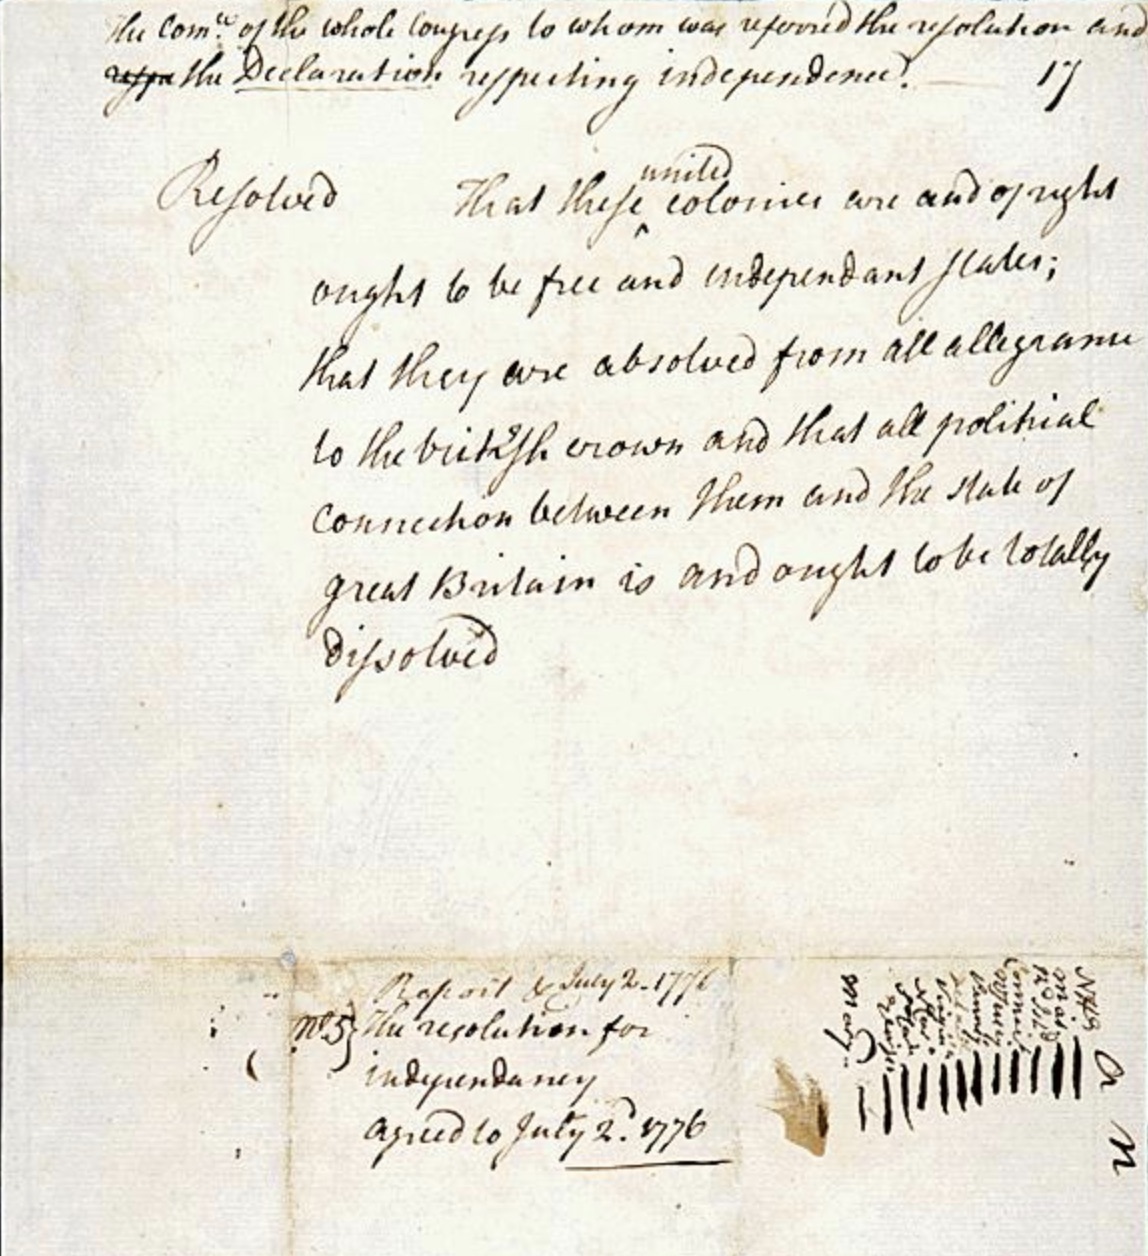 The Com.ee of the whole Congress to whom was referred the resolution and
the Declaration respecting independence.
17
Resolved That these united colonies are and of right
ought to be free and independant states;
that they are absolved from all allegiance
to the british crown and that all political
connection between them and the state of
great Britain is and ought to be totally
dissolved
Report &c July 2. 1776
No. 5} The resolution for
independancy
agreed to July 2.d 1776